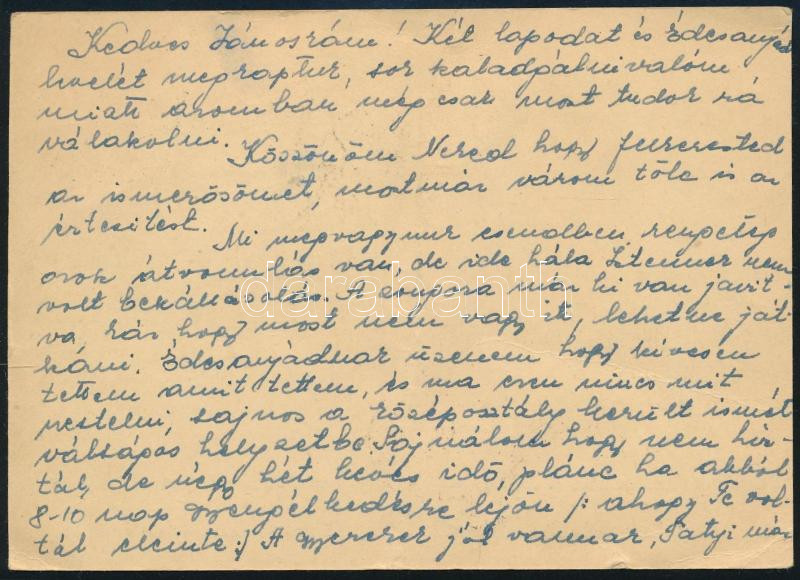 Kedves Jánoskám! Két lapodat és Édesanyád
levelét megkaptuk, sok szaladgálnivalóm
miatt azonban, még csak most tudok rá
válaszolni.
Köszönöm Neked hogy felkerested
az ismerősömet, mostmár várom tőle is az
értesitést.
Mi megvagyunk csendben rengeteg
orosz átvonulás van, de ide hála Istennek nem
volt beszállásolás. A zongora már ki van javit-
va, kár hogy most nem vagy itt, lehetne ját-
szani. Édesanyádnak üzenem hogy
tettem amit tettem, és ma ezen nincs mit
restelni, sajnos a középosztály került ismét
válságos helyzetbe. Sajnálom hogy nem hiz-
tál, de négy hét kevés idő, pláne ha abból
8-10 nap gyengélkedésre lejön /: ahogy Te vol-
tál eleinte :/ A gyerekek jól vannak, Patyi már
darabanth